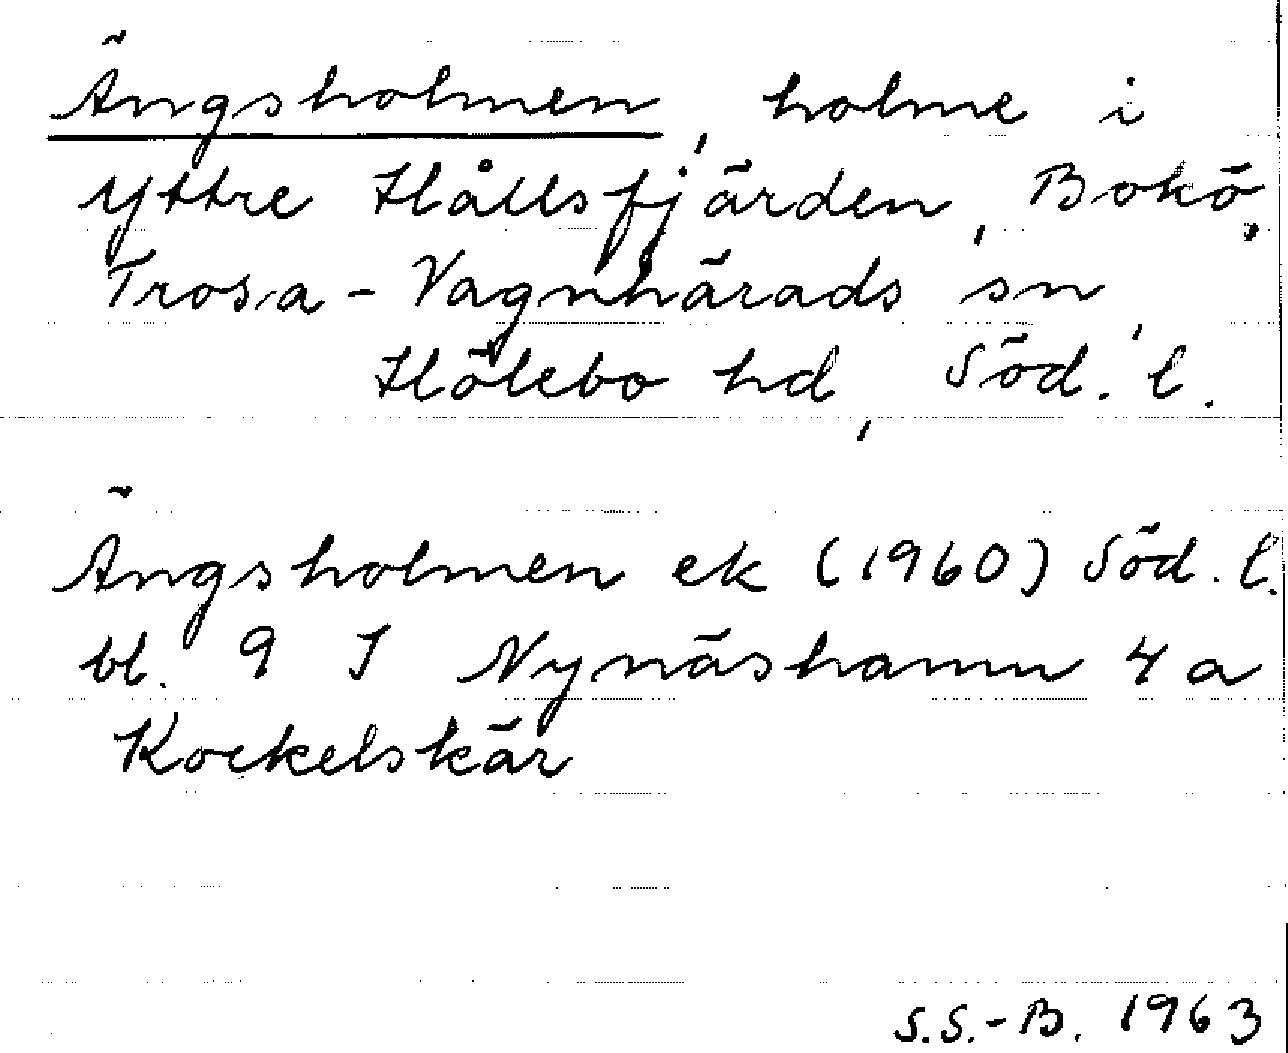 Ängsholmen, holme i
yttre Hållsfjärden, Bokö,
Trosa-Vagnhärads sn,
Hölebo hd, Söd. l.
Ängsholmen ek (1960) Söd. l.
bl. 9 I Nynäshamn 4 a
Kockelskär
S.S.-B. 1963